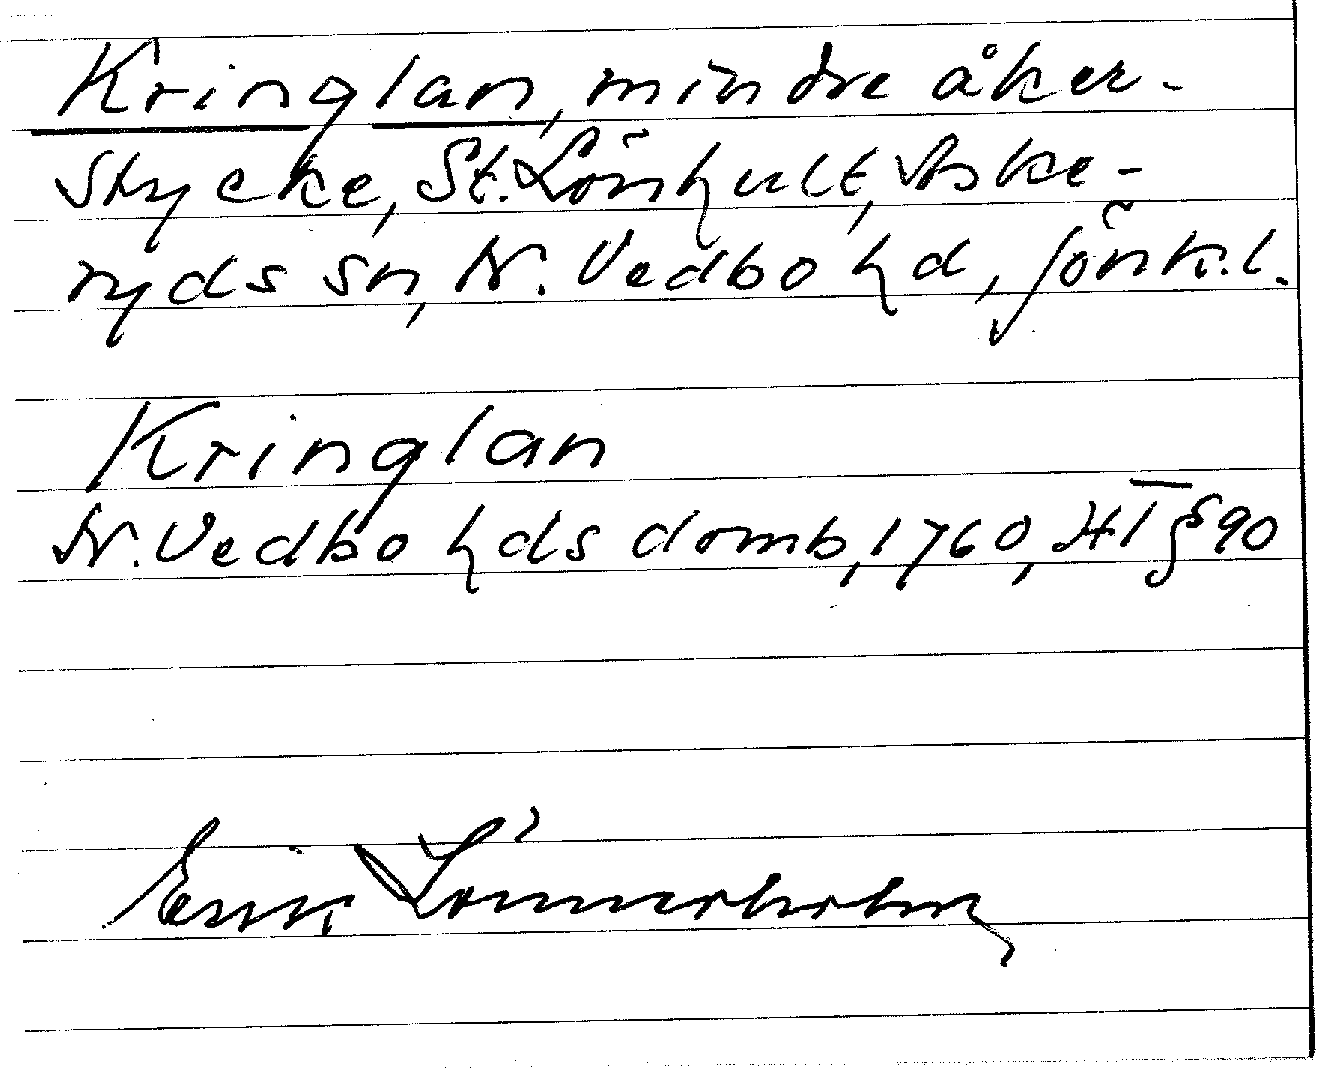 Kringlan, mindre åker-
stycke, St. Lönhult, Aske-
ryds sn, N. Vedbo hd, Jönk. l.
Kringlan
N. Vedbo hds domb, 1760, HT § 90
Erik Lönnerholm